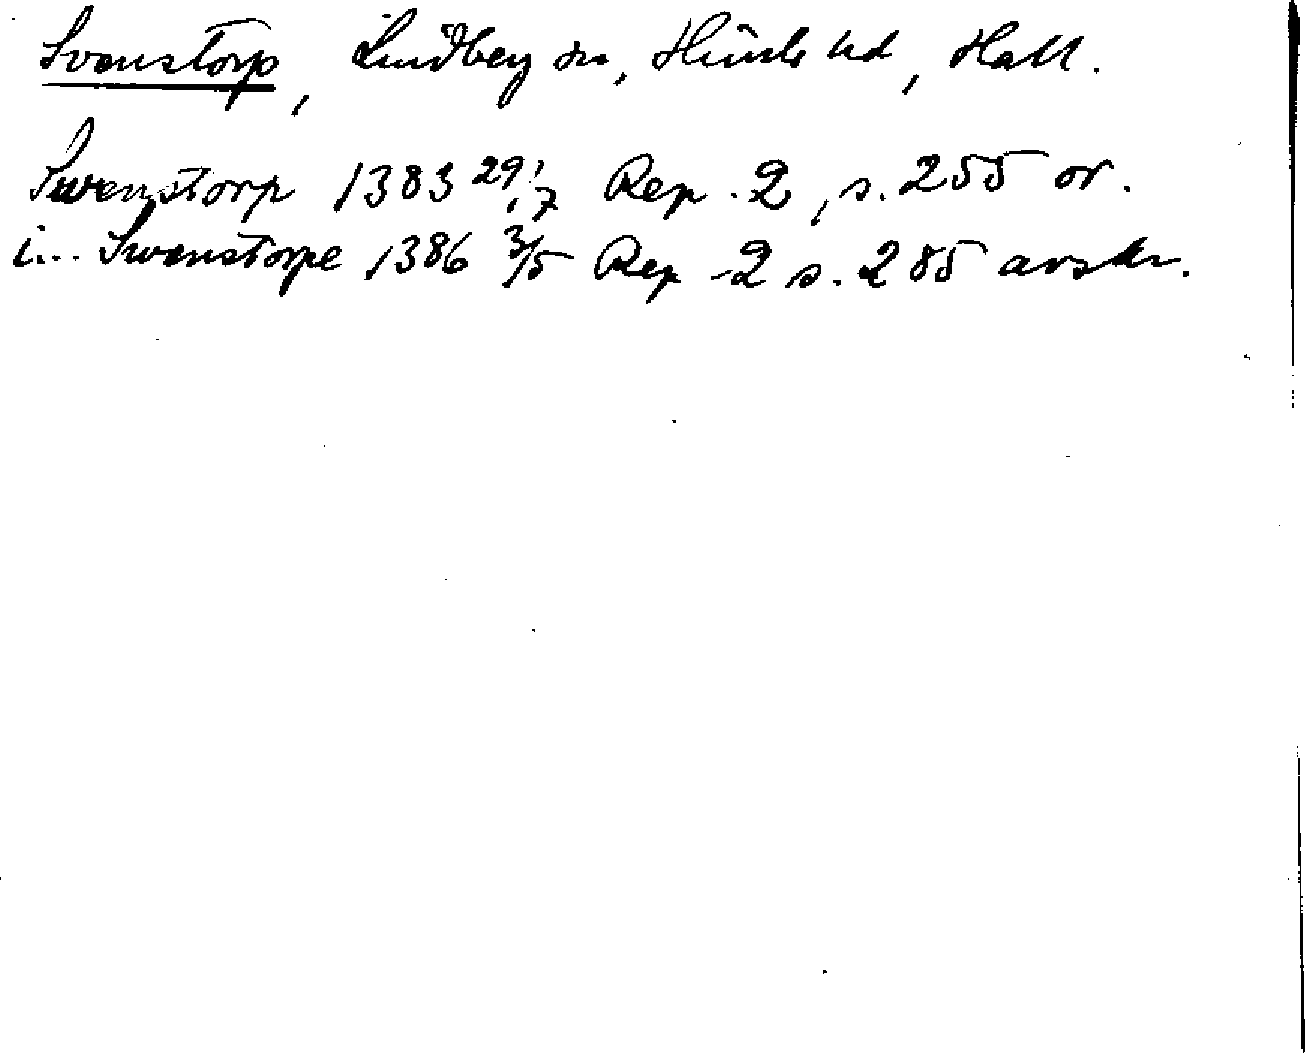 Svenstorp, Lindberg sn, Himle hd, Hall.
Swenstorp 1383 29/7 Rep. 2, s. 255 or.
i... Swenstorpe 1386 3/5 Rep 2 s. 285 avskr.